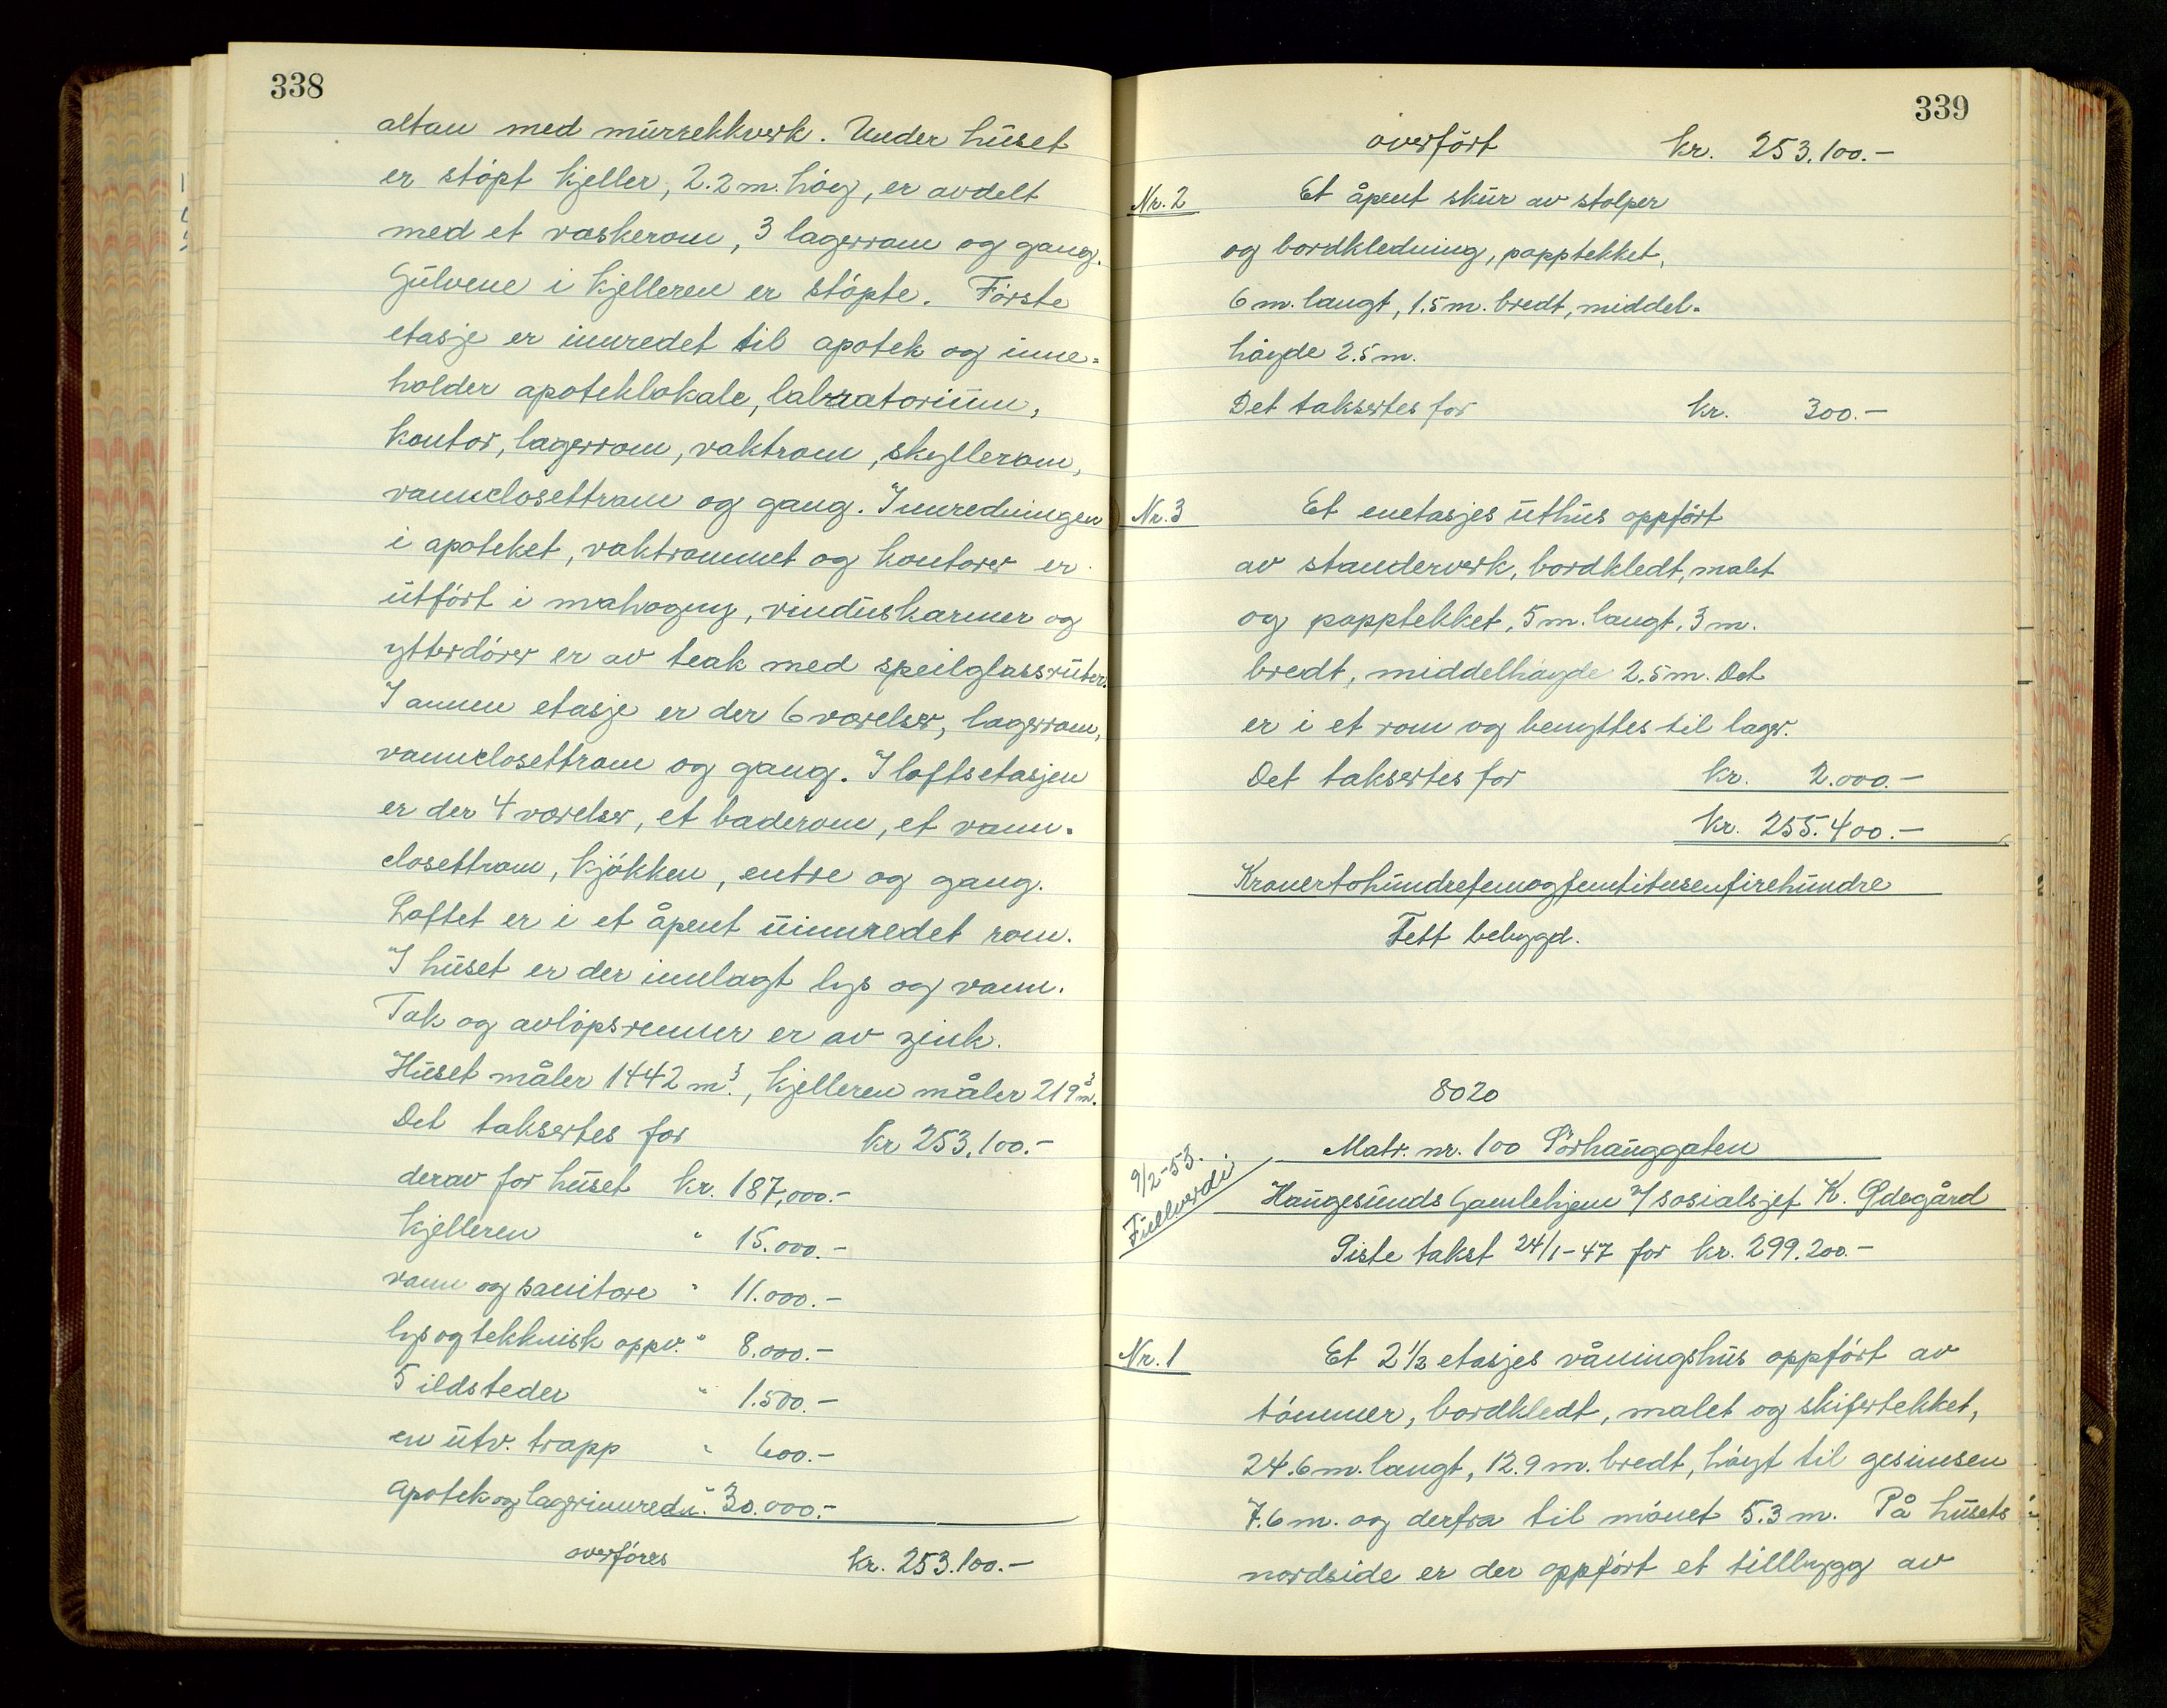 338
altan med murrekkverk. Under huset
er støpt kjeller, 2.2 m. høy, er avdelt
med et vaskerom, 3 lagerrom og gang.
Gulvene i kjelleren er støpte. Første
etasje er innredet til apotek og inne=
holder apoteklokale, labratorium,
kontor, lagerrom, vaktrom, skyllerom,
vannclosettrom og gang. Innredningen
i apoteket, vaktrommet og kontorer er
utført i mahogny, vinduskarmer og
ytterdører er av teak med speilglassruter.
I annen etasje er der 6 værelser, lagerrom,
vannclosettrom og gang. I loftsetasjen
er der 4 værelser, et baderom, et vann=
closettrom, kjøkken, entre og gang.
Loftet er i et åpent uinnredet rom.
I huset er der innlagt lys og vann.
Tak og avløpsrenner er av zink.
Huset måler 1442 m³., kjelleren måler 219 m³.
Det takseres for kr 253.100.-
derav for huset kr. 187,000.-
kjelleren " 15.000.-
vann og sanitære " 11.000.-
lys og tekknisk oppv. " 8.000.-
5 ildsteder " 1.500.-
en utv. trapp " 600.-
apotek og lagerinnredn. " 30.000.-
overføres kr. 253.100.-
339
overført kr. 253.100.-
Nr. 2 Et åpent skur av stolper
og bordkledning, papptekket,
6 m. langt, 1.5 m. bredt, middel=
høyde 2.5 m.
Det taksertes for kr. 300.-
Nr. 3 Et enetasjes uthus oppført
av standerverk, bordkledt, malt
og papptekket, 5 m. langt, 3 m.
bredt, middelhøyde 2.5 m. Det
er i et rom og benyttes til lager.
Det taksertes for kr. 2.000.-
kr. 255.400.-
Kronertohundrefemogfemtitusenfirehundre
Tett bebygd.
8020
9/2-53.
Fullverdi
Matr. nr. 100 Sørhauggaten
Haugesunds Gamlehjem v/ sosialsjef K. Ødegård
Siste takst 24/1-47 for kr. 299.200.-
Nr. 1 Et 2 1/2 etasjes våningshus oppført av
tømmer, bordkledt, malet og skifertekket,
24.6 m. langt, 12.9 m. bredt, høyt til gesimsen
7.6 m. og derfra til mønet 5.3 m. På husets
nordside er der oppført et tillbygg av